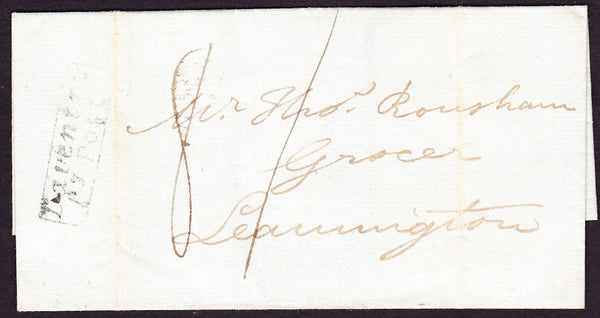 Daventry
Py Post
8
/
Mr. Thos. Rousham
Grocer
Leamington